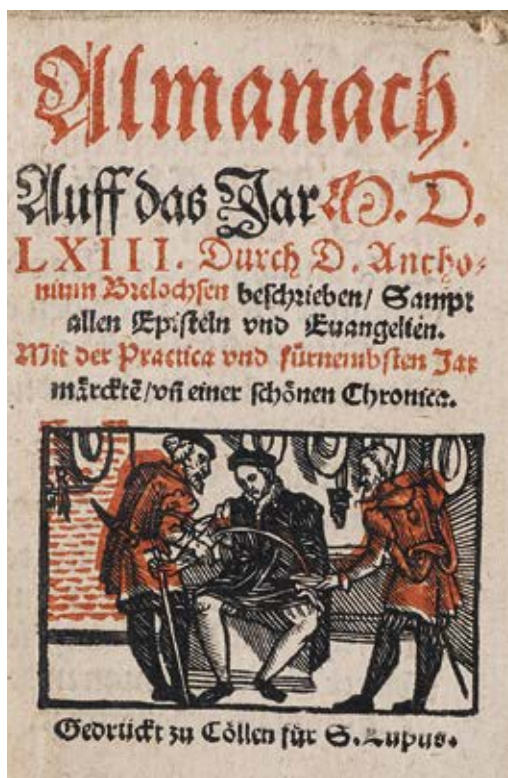 Almanach.
Auff das Jar M. D.
LXIII. Durch D. Antho⸗
nium Brelochsen beschrieben/ Sampt
allen Episteln vnd Euangelien.
Mit der Practica vnd fürnembsten Jar
märcktē/vñ einer schönen Chronica.
Gedrückt zu Cöllen für S. Lupus.